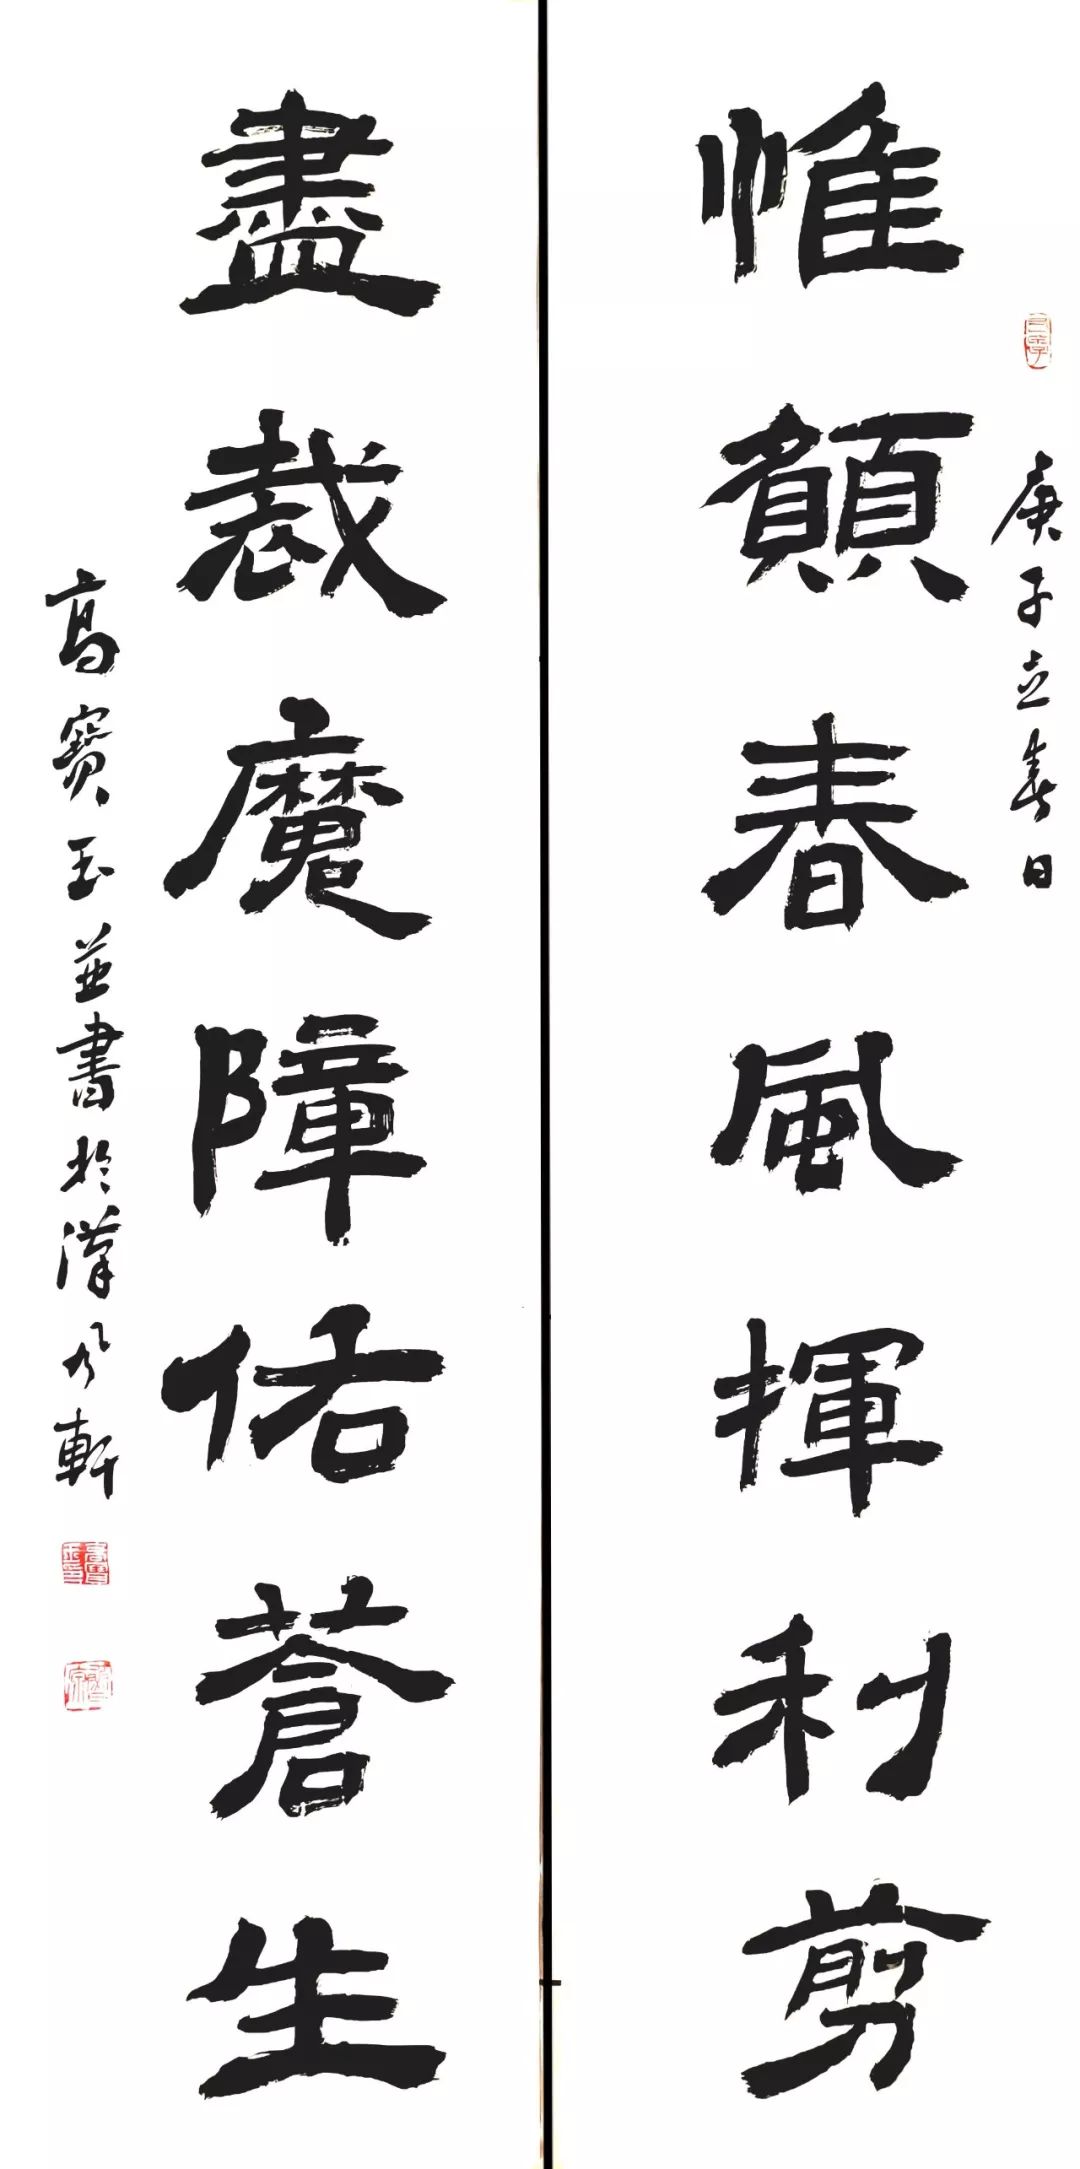 惟願春風揮利剪
庚子立春日
盡裁魔障佑蒼生
高寶玉並書於漢風軒